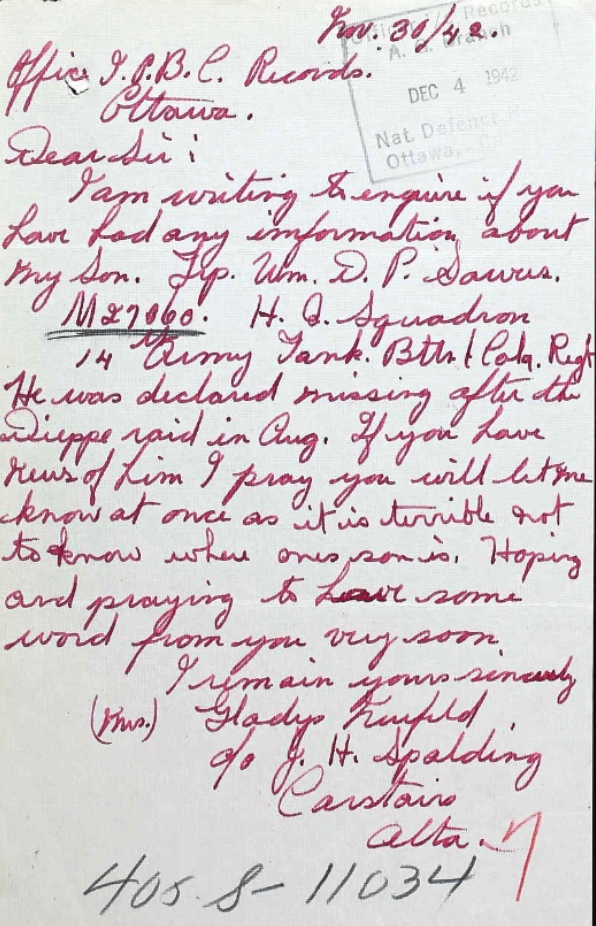 Nov. 30/42.
Official Records
A. G. Branch
DEC 4 1942
Nat. Defence
Ottawa,
Office I.P.B.C. Records.
Ottawa.
Dear Sir:
I am writing to enquire if you
have had any information about
my son. Trp. Wm. D. P.
M27060. H. Q. Squadron
14th Army Tank. Bttn. (Calg. Regt
He was declared missing after the
Dieppe raid in Aug. If you have
news of him I pray you will let me
know at once as it is terrible not
to know where ones son is. Hoping
and praying to have some
word from you very soon
I remain yours sincerely
(Mrs.) Gladys
c/o J. H. Spalding
Carstairs
Alta.
405. S- 11034